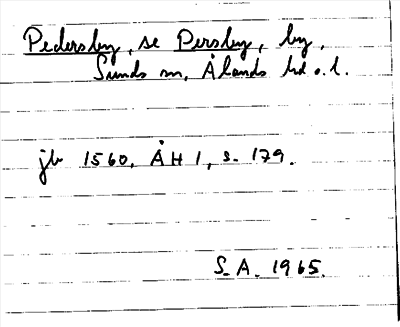 Pedersby, se Persby, by,
Sunds sn, Ålands hd o. l.
jb 1560, ÅH 1, s. 179.
S. A. 1965.